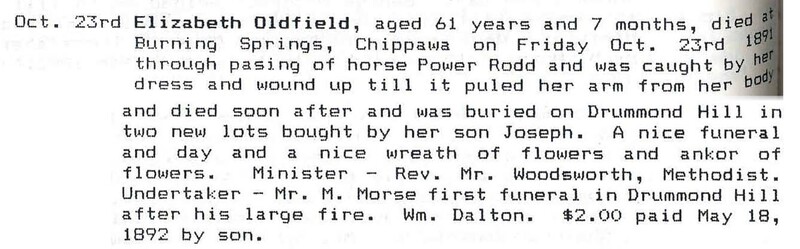 Oct. 23rd Elizabeth Oldfield, aged 61 years and 7 months, died at
Burning Springs, Chippawa on Friday Oct. 23rd 1891
through pasing of horse Power Rodd and was caught by her
dress and wound up till it puled her arm from her body
and died soon after and was buried on Drummond Hill in
two new lots bought by her son Joseph. A nice funeral
and day and a nice wreath of flowers and ankor of
flowers. Minister - Rev. Mr. Woodsworth, Methodist.
Undertaker - Mr. M. Morse first funeral in Drummond Hill
after his large fire. Wm. Dalton. $2.00 paid May 18,
1892 by son.